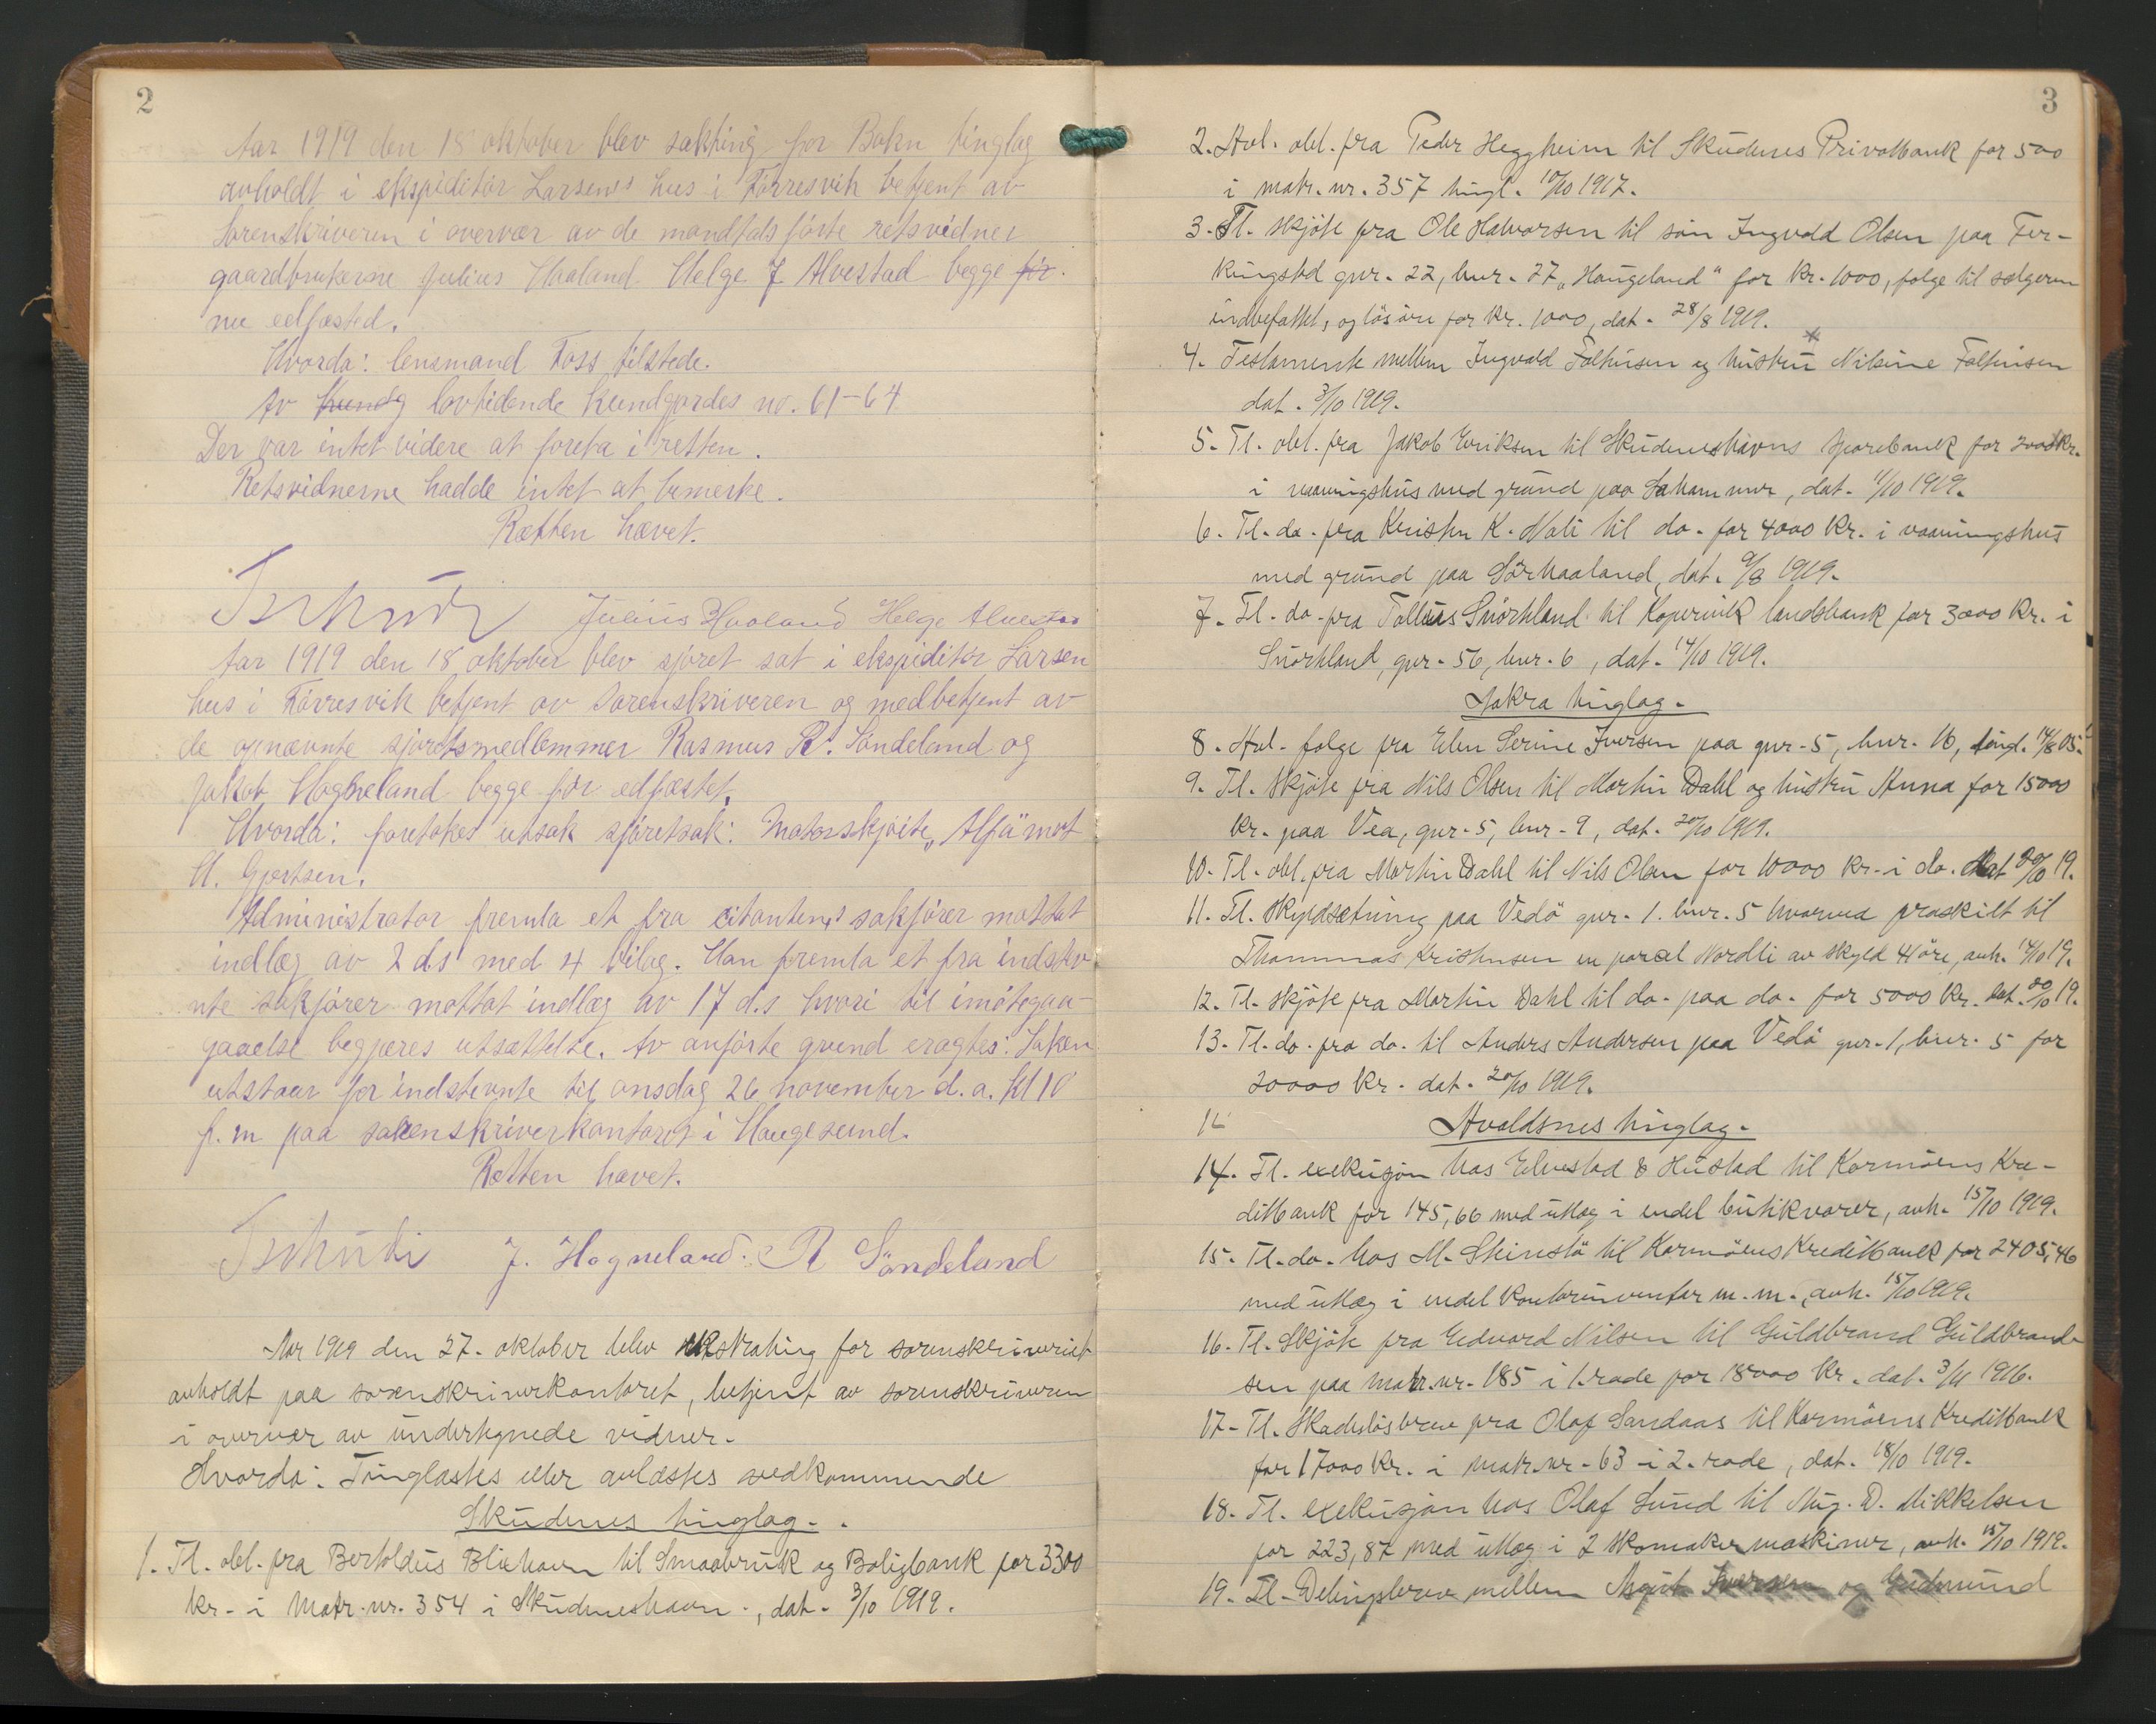 2
Aar 1919 den 18 oktober blev sakting for Bokn tinglag
avholdt i ekspeditör Larsens hus i Förresvik betjent av
Sorenskriveren i overvær av de mandtalsførte retsvidner
gaardbrukerne Julius Haaland Helge J Alvestad begge før.
nu edfæsted.
Hvorda: lensmand Foss tilstede.
Av kundg lovtidende kundgjordes no. 61-64
Der var intet videre at foreta i retten.
Retsvidnerne hadde intet at bemerke.
Rætten hævet.
Tschudi Julius Haaland Helge Alvestad
Aar 1919 den 18 oktober blev sjøret sat i ekspeditör Larsen
hus i Førresvik betjent av Sorenskriveren og medbetjent av
de opnævnte sjøretsmedlemmer Rasmus R. Söndeland og
Jakob Hogneland begge før edfæstet.
Hvorda: foretokes utsak sjøretsak: Motorskjöite „Alfa" mot
H. Gjertsen.
Administrator fremla et fra citantens sakfører mottat
indlæg av 2 ds med 4 bilag. Han fremla et fra indstev
nte sakfører mottat indlæg av 17 d.s hvori til imøtegaa-
gaaelse begjæres utsættelse. Av anførte grund eragtes: Saken
utstaar for indstevnte til onsdag 26 november d. a. kl 10
f. m paa sorenskriverkontoret i Haugesund.
Rætten hævet.
Tschudi J. Hogneland. R Söndeland
Aar 1919 den 27. oktober blev ekstrating for sorenskriveriet
avholdt paa sorenskriverkontoret, betjent av sorenskriveren
i overvær av undertegnede vidner.
Hvorda: Tinglæstes eller avlæstes vedkommende
Skudenes tinglag.
1. Tl. obl. fra Bertoldus Blixhavn til Smaabruk og Boligbank for 3300
kr. i Matr. nr. 354 i Skudeneshavn, dat. 3/10 1919.
3
2. Avl. obl. fra Peder Heggheim til Skudenes Privatbank for 500
i matr. nr. 357 tingl. 10/10 1917.
3. Tl. skjöte fra Ole Halvorsen til sön Ingvald Olsen paa Fer-
kingstd gnr. 22, bnr. 27 „Haugeland" for kr. 1000, folge til sælgeren
indbefattet, og lösöre for kr. 1000, dat. 28/8 1919.
4. Testamente mellem Ingvald Falkeisen og hustru Nilsine Falkeisen
dat. 3/10 1919.
5. Tl. obl. fra Jakob Eriksen til Skudeneshavns Sparebank for 2000 kr.
i vaaningshus med grund paa Sakammer, dat. 11/10 1919.
6. Tl. do. fra Kristen K. Hali til do. for 4000 kr. i vaaningshus
med grund paa Sörhaaland, dat. 9/8 1919.
7. Tl. do. fra Tolleus Snörteland til Kopervik landsbank for 3000 kr. i
Snörteland, gnr. 56, bnr. 6, dat. 14/10 1919.
Aakra tinglag.
8. Avl. folge fra Elen Serine Iversen paa gnr. 5, bnr. 16, tingl. 14/8 05.
9. Tl. skjöte fra Nils Olsen til Martin Dahl og hustru Anna for 15000
kr. paa Vea, gnr. 5, bnr. 9, dat. 20/10 1919.
10. Tl. obl. fra Martin Dahl til Nils Olsen for 10000 kr. i do. dat 20/10 19.
11. Tl. skyldsetning paa Vedö gnr. 1. bnr. 5 hvorved fraskilt til
Thommas Kristensen en parcel Nordli av skyld 4 öre, avh. 14/10 19.
12. Tl. skjöte fra Martin Dahl til do. paa do. for 5000 kr. dat. 20/10 19.
13. Tl. do. fra do. til Anders Andersen paa Vedö gnr. 1, bnr. 5 for
20000 kr. dat. 20/10 1919.
Avaldsnes tinglag.
14. Tl. exekusjon hos Elvestad & Hustad til Karmöens Kre-
ditbank for 145,66 med utlæg i endel butikvarer, avh. 15/10 1919.
15. Tl. do. hos M. Steinstö til Karmöens Kreditbank for 2405,46
med utlæg i endel kontorinventar m. m., avh. 15/10 1919.
16. Tl. Skjöte fra Edvard Nilsen til Guldbrand Guldbrand-
sen paa Matr. nr. 185 i 1. rode for 18000 kr. dat. 3/11 1916.
17. Tl. Skadeslösbrev fra Olaf Sandaas til Karmöens Kreditbank
for 17000 kr. i Matr. nr. 63 i 2. rode, dat. 18/10 1919.
18. Tl. exekusjon hos Olaf Sund til Aug. D. Mikkelsen
for 223,87 med utlæg i 2 skomakermaskiner, avh. 15/10 1919.
19. Tl. Delingsbrev mellem August Iversen og Gudmund